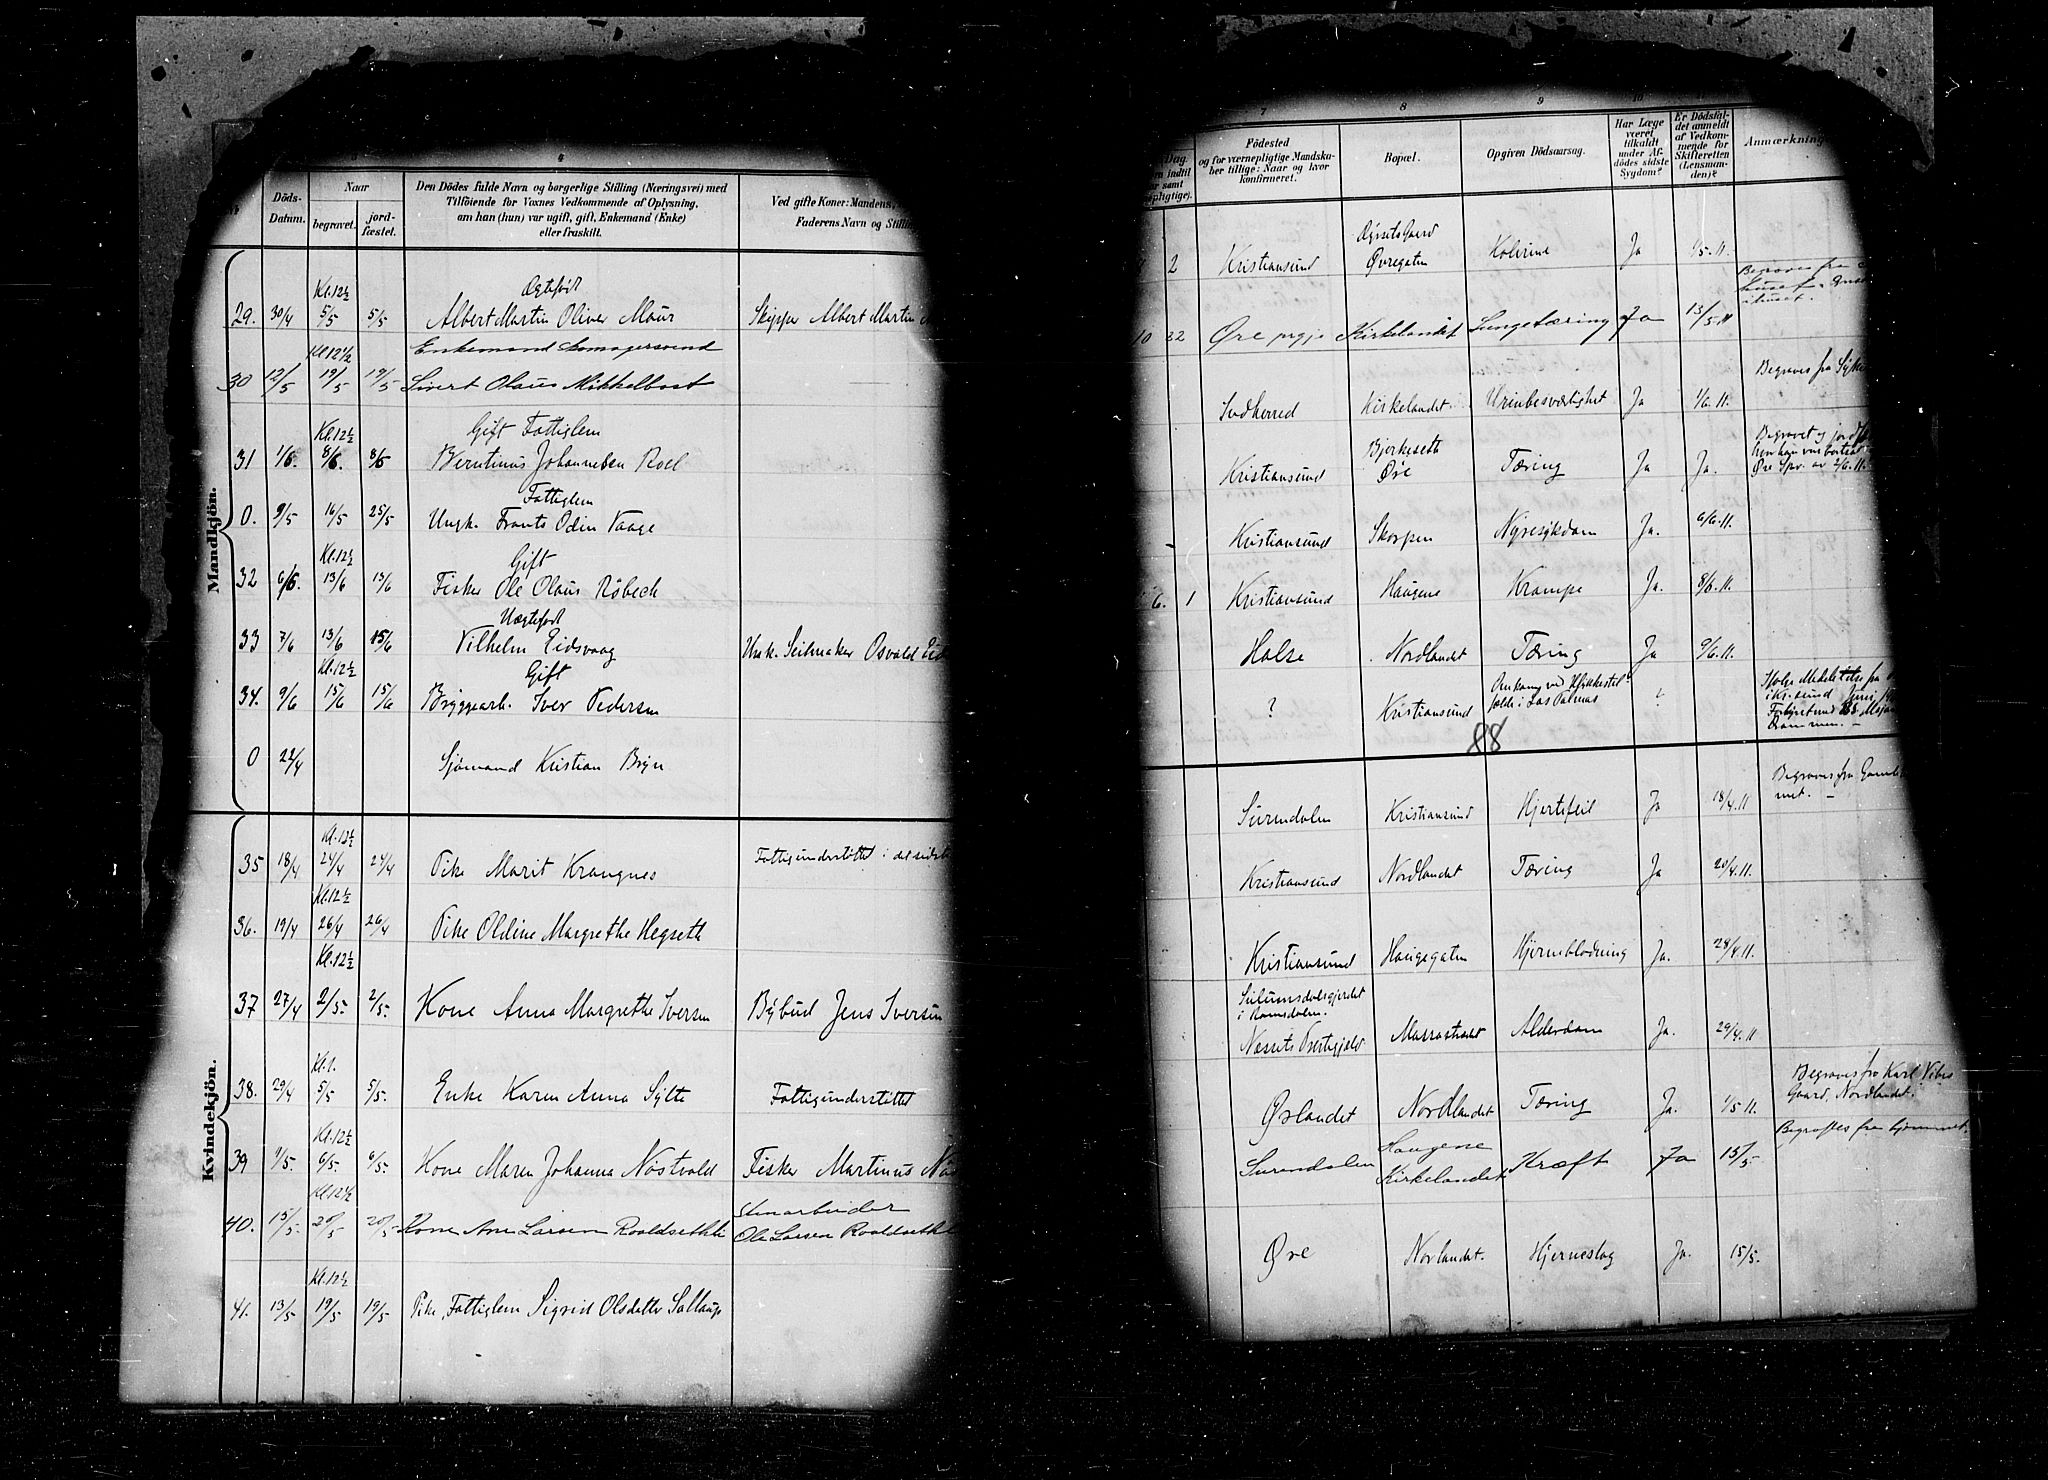 3
4
Döds-
Datum.
Naar
begravet.
jord-
fæstet.
Den Dödes fulde Navn og borgerlige Stilling (Næringsvei) med
Tilföiende for Voxnes Vedkommende af Oplysning,
om han (hun) var ugift, gift, Enkemand (Enke)
eller fraskilt.
Ved gifte Koner: Mandens,
Faderens Navn og Stilling
Mandkjön.
Kl. 12½
Ægtefødt
29. 30/4 5/5 5/5 Albert Martin Oliver Maur Skipper Albert Martin
Kl 12½ Enkemand
30 12/5 19/5 19/5 Sivert Olaus Mikkelbost
Kl. 12½ Gift Fattiglem
31 1/6. 8/6. 8/6 Berntinus Johannessen Roel
Fattiglem
0. 9/5 16/5 25/5 Ungk. Frants Odin Vaage
Kl. 12½ Gift
32 6/6. 13/6 13/6 Fisker Ole Olaus Røbech
Uægtefødt
33 7/6 13/6 15/6 Vilhelm Eidsvaag Unk. Seilmaker Osvald Eid
Kl. 12½ Gift
34. 9/6 15/6 15/6 Bryggearb. Iver Pedersen
0 22/4 Sjømand Kristian Bryn
Kvindekjön.
Kl. 12½
35 18/4 24/4 24/4 Pike Marit Krangnes Fattigunderstøttet i det sidste
Kl. 12½
36. 19/4 26/4 26/4 Pike Oldine Margrethe Hegseth
Kl. 12½
37 27/4 2/5. 2/5. Kone Anna Margrethe Iversen Bybud Jens Iversen
Kl. 1.
38. 29/4 5/5 5/5. Enke Karen Anna Sylte Fattigunderstøttet
Kl. 12½
39 1/5. 6/5. 6/5. Kone Maren Johanna Nøstvold Fisker Martinus Nøs
Kl 12½ Stenarbeider
40. 15/5. 20/5 20/5 Kone Ane Larsen Roaldsethli Ole Larsen Roaldsethli
Kl. 12½
41. 13/5. 19/5 19/5 Pike, Fattiglem Sigrid Olsdatter Sallaup
7
8
9
10
Dag.
Födested
og for værnepligtige Mandska-
ber tillige: Naar og hvor
konfirmeret.
Bopæl.
Opgiven Dödsaarsag.
Har Læge
været
tilkaldt
under Af-
dödes sidste
Sygdom?
Er Dödsfal-
det anmeldt
af Vedkom-
mende for
Skifteretten
(Lensman-
den)?
Anmærkning
2 Kristiansund Øvregaten Kolerine Ja 1/5. 11.
Begraves fra
10 22 Øre prgj. Kirkelandet Lungetæring Ja 13/5 11
Indherred Kirkelandet Urinbesværlighet Ja 1/6. 11. Begraves fra Syke
Kristiansund Bjerkeseth
Øre Tæring Ja Ja. Begravet og jordf
Øre Spr. av 2/6. 11.
Kristiansund Skorpen Nyresykdom Ja. 6/6. 11.
6. 1 Kristiansund Haugene Krampe Ja. 8/6. 11.
Halse Nordlandet Tæring Ja 9/6. 11.
? Kristiansund Omkom ved
i Las Palmas ?
88
Surendalen Kristiansund Hjertefeil Ja 18/4. 11 Begraves fra Gamle
met.
Kristiansund Nordlandet Tæring Ja 20/4. 11.
Kristiansund Haugegaten Hjerneblødning Ja. 28/4. 11.
i Romsdalen.
Nessets Prestegjeld Alderdom Ja. 29/4. 11
Ørlandet Nordlandet Tæring Ja. 1/5 11. Begraves fra Karl Vibes
Gaard, Nordlandet.
Surendalen Haugene
Kirkelandet Kræft Ja 15/5. Begraves fra hjemmet.
Øre Norlandet. Hjerneslag Ja. 15/5.